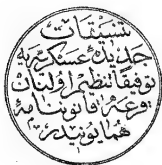 تنسیقات
جدیدهٔ عسکریه یه
توفیقا تنظیم اولنان
قرعه قانوننامهٔ
همایونیدر